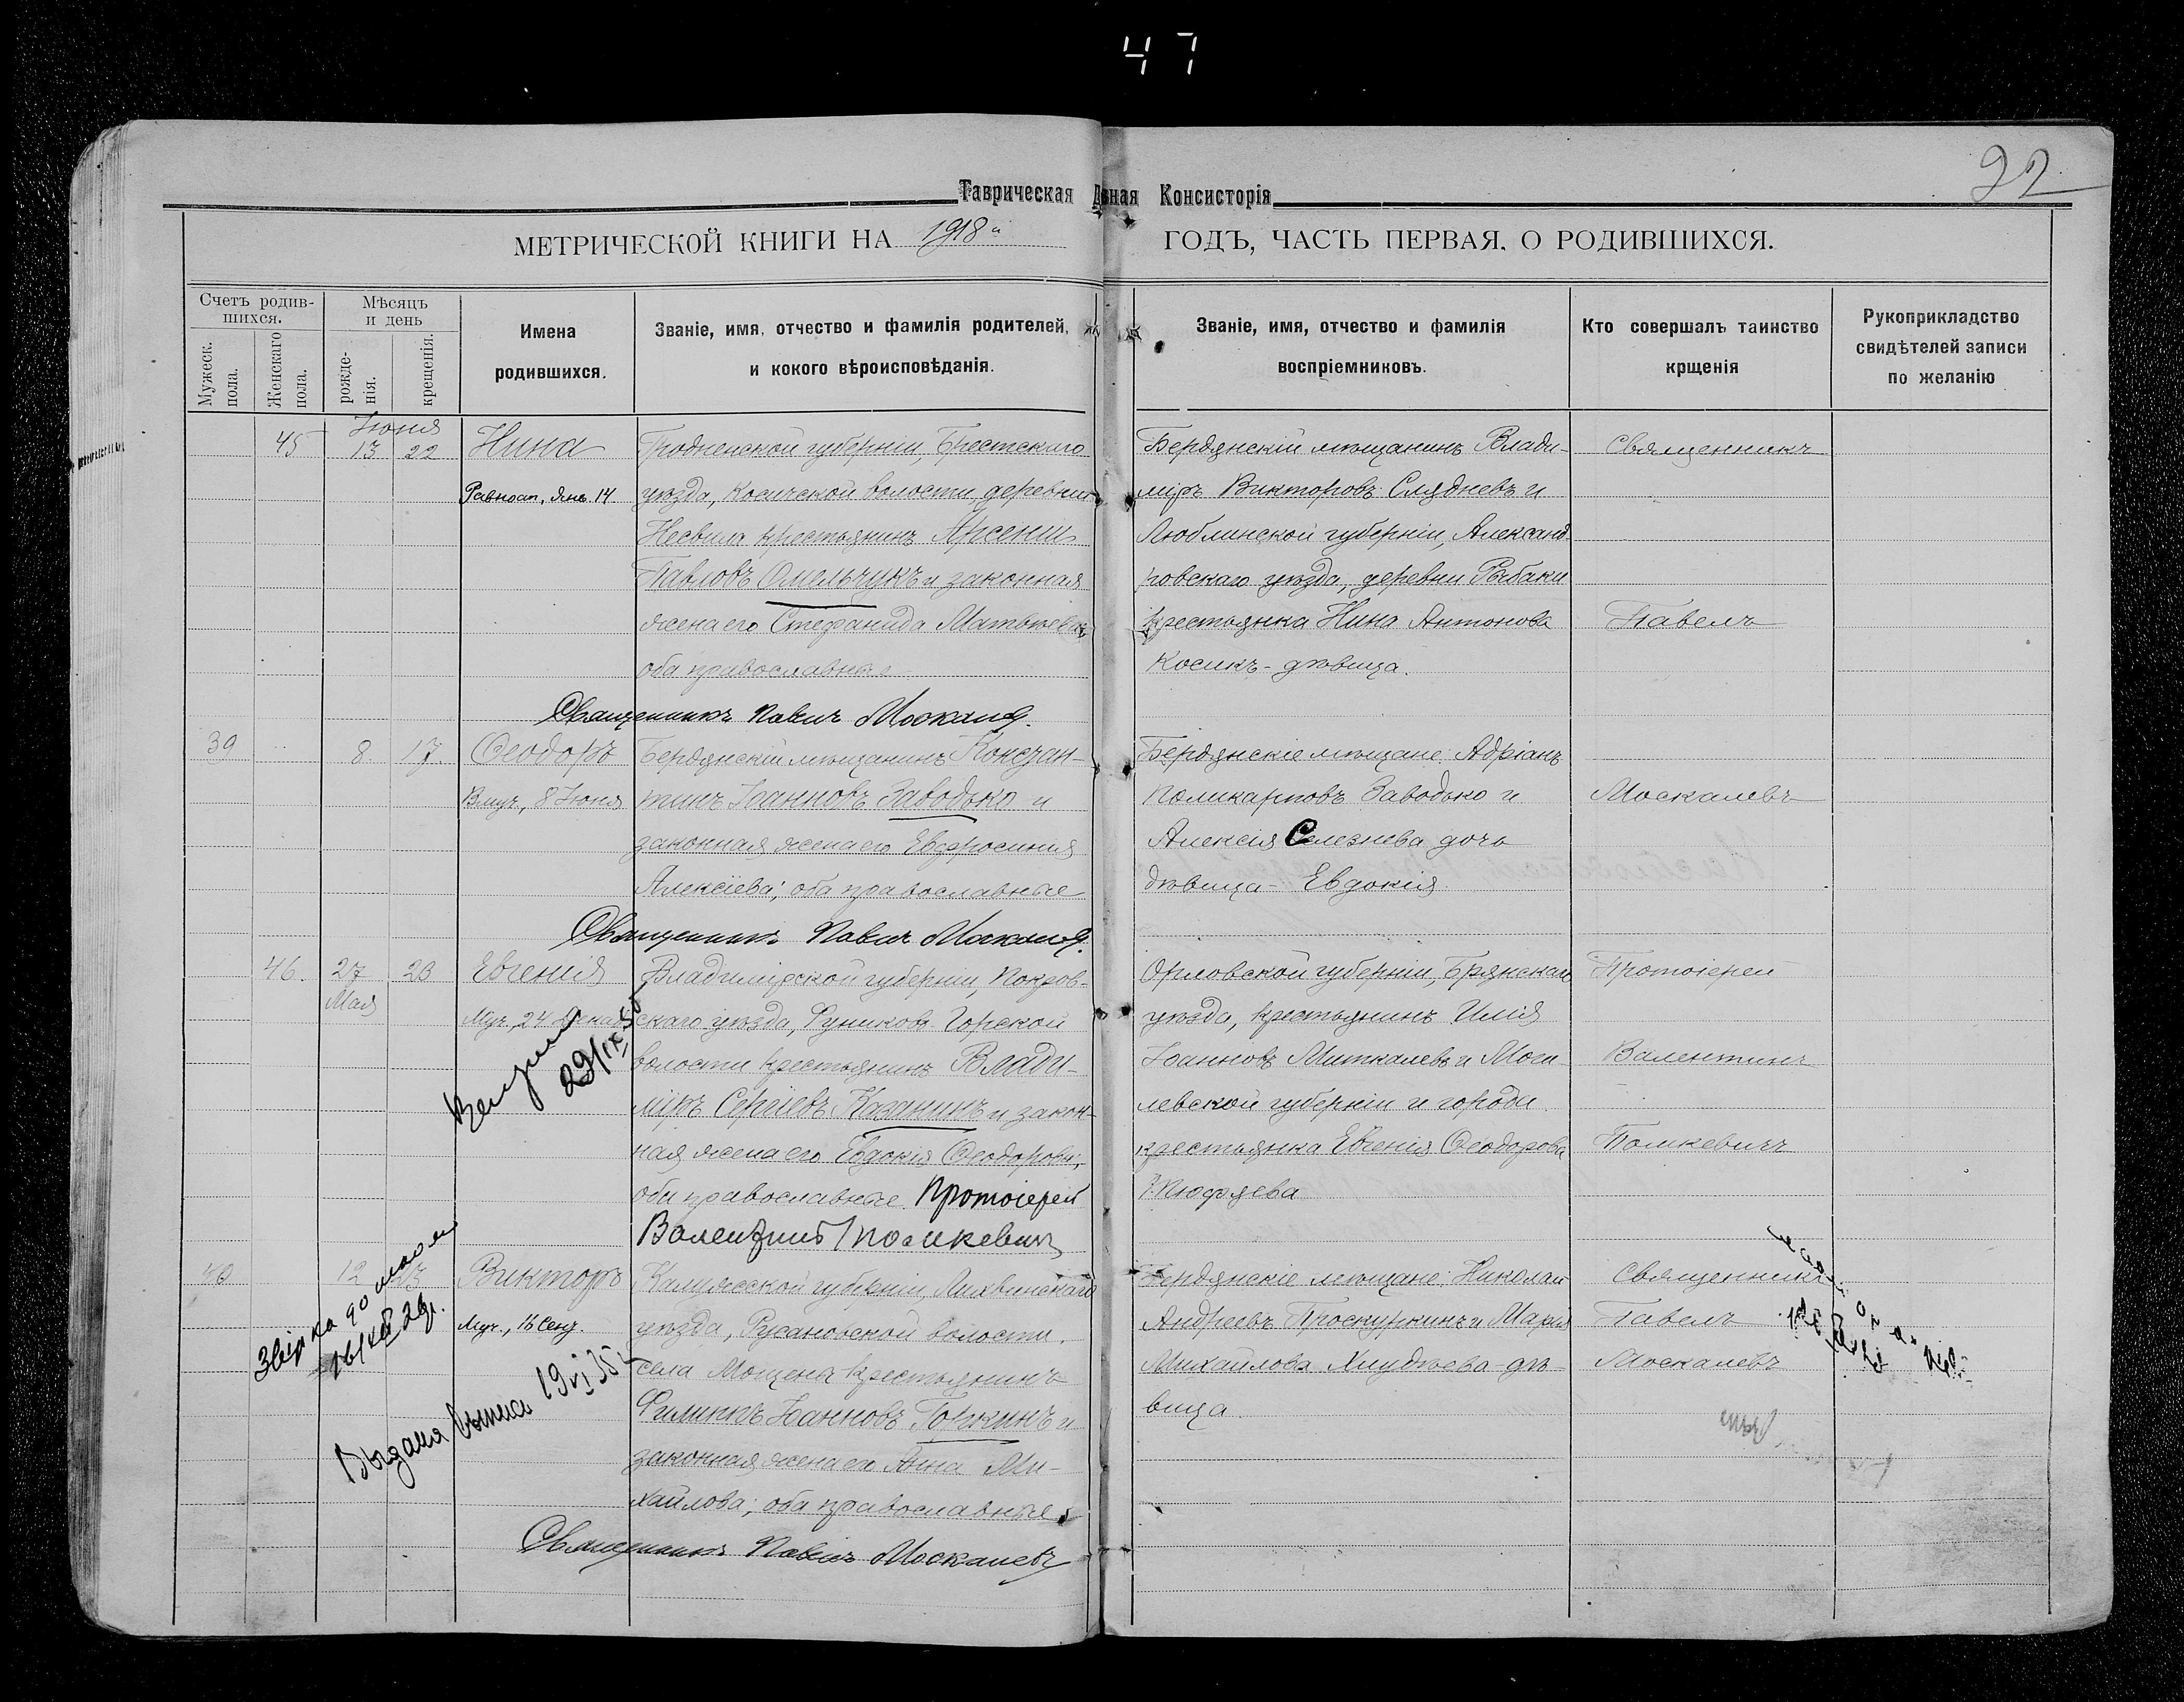 47
22
Таврическая Д вная Консисторія
МЕТРИЧЕСКОЙ КНИГИ НА 1918 й ГОДЪ, ЧАСТЬ ПЕРВАЯ, О РОДИВШИХСЯ.
Счетъ родив-
шихся.
Мужеск.
пола.
Женскаго
пола.
Мѣсяцъ
и день
рожде-
нія.
крещенія.
Имена
родившихся.
Званіе, имя, отчество и фамилія родителей,
и кокого вѣроисповѣданія.
Званіе, имя, отчество и фамилія
воспріемниковъ.
Кто совершалъ таинство
крщенія
Рукоприкладство
свидѣтелей записи
по желанію
45
Іюня
13 22
Нина
Равноап, Янв. 14.
Гродненской губерніи, Брестскаго
уѣзда, Косичской волости, деревни
крестьянинъ Арсеній
Павловъ Омельчукъ и законная
жена его Стефанида Матвѣева
оба православные
Священникъ Павелъ Москалев.
Бердянскій мѣщанинъ Влади-
міръ Викторовъ Слядневъ и
Люблинской губерніи, Александ-
ровскаго уѣзда, деревни Рыбаки
крестьянка Нина Антонова
Косикъ - дѣвица.
Священникъ
Павелъ
Москалевъ
39
8. 17.
Ѳеодоръ
Вмуч., 8 Іюня
Бердянскій мѣщанинъ Констан-
тинъ Іоанновъ Заводько и
законная жена его Евфросинія
Алексіева; оба православные
Священникъ Павелъ Москалев.
Бердянскіе мѣщане: Адріанъ
Поликарповъ Заводько и
Алексія Селезнева дочь
дѣвица - Евдокія.
46.
27 23
Мая
Евгенія
Муч., 24 Декаб.
29/IX
Владимірской губерніи, Покров-
скаго уѣзда, Фуникова-Горской
волости крестьянинъ Влади-
міръ Сергіевъ Казанинъ и закон-
ная жена его Евдокія Ѳеодорова;
оба православные. Протоіерей
Валентинъ Помкевичъ
Орловской губерніи, Брянскаго
уѣзда, крестьянинъ Илія
Іоанновъ Миткалевъ и Моги-
левской губерніи и города
крестьянка Евгенія Ѳеодорова
Протоіерей
Валентинъ
Помкевичъ
40
12 23
Викторъ
Муч., 16 Сент.
Калужской губерніи, Лихвинскаго
уѣзда, Русановской волости,
села Мощены крестьянинъ
Филиппъ Іоанновъ Горкинъ и
законная жена его Анна Ми-
хайлова; оба православные.
Священникъ Павелъ Москалевъ
Бердянскіе мѣщане: Николай
Андреевъ Проскуркинъ и Марія
Михайлова Хмудѣева - дѣ-
вица.
Священникъ
Павелъ
Москалевъ
Выдана выпись 19 VI 35